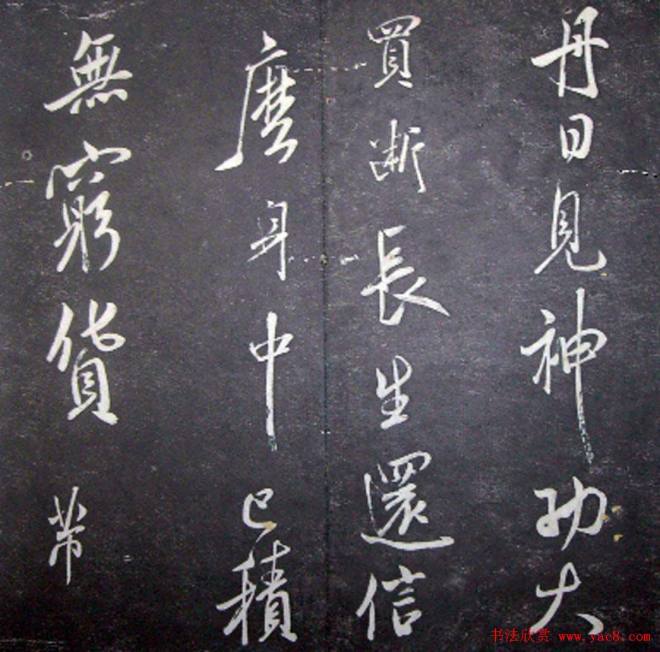 丹日見神功大
買斷長生還信
麽身中已積
無窮貨 芾
书法欣赏 www.yac8.com